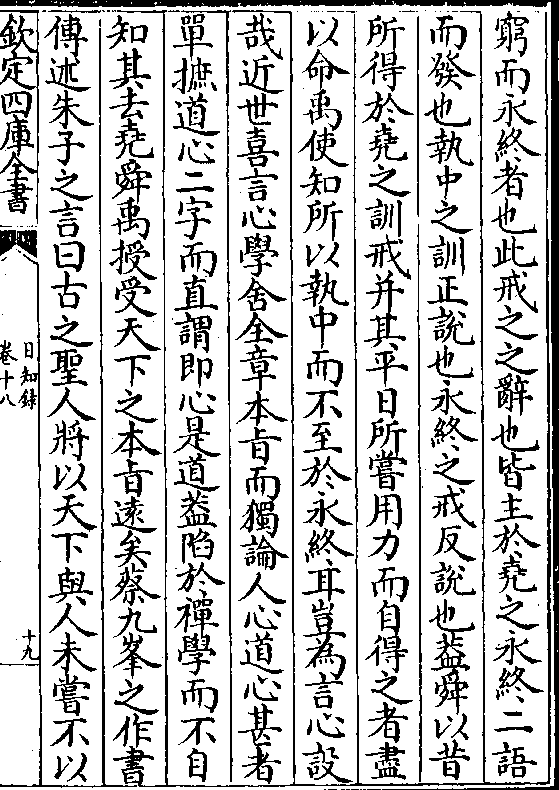 窮而永終者也此戒之之辭也皆主於堯之永終二語
而發也執中之訓正說也永終之戒反說也葢舜以昔
所得於堯之訓戒并其平日所嘗用力而自得之者盡
以命禹使知所以執中而不至於永終耳豈為言心設
哉近世喜言心學舍全章本旨而獨論人心道心甚者
單摭道心二字而直謂即心是道葢陷於禪學而不自
知其去堯舜禹授受天下之本旨遠矣蔡九峯之作書
傳述朱子之言曰古之聖人將以天下與人未嘗不以
欽定四庫全書
日知錄
卷十八
十九